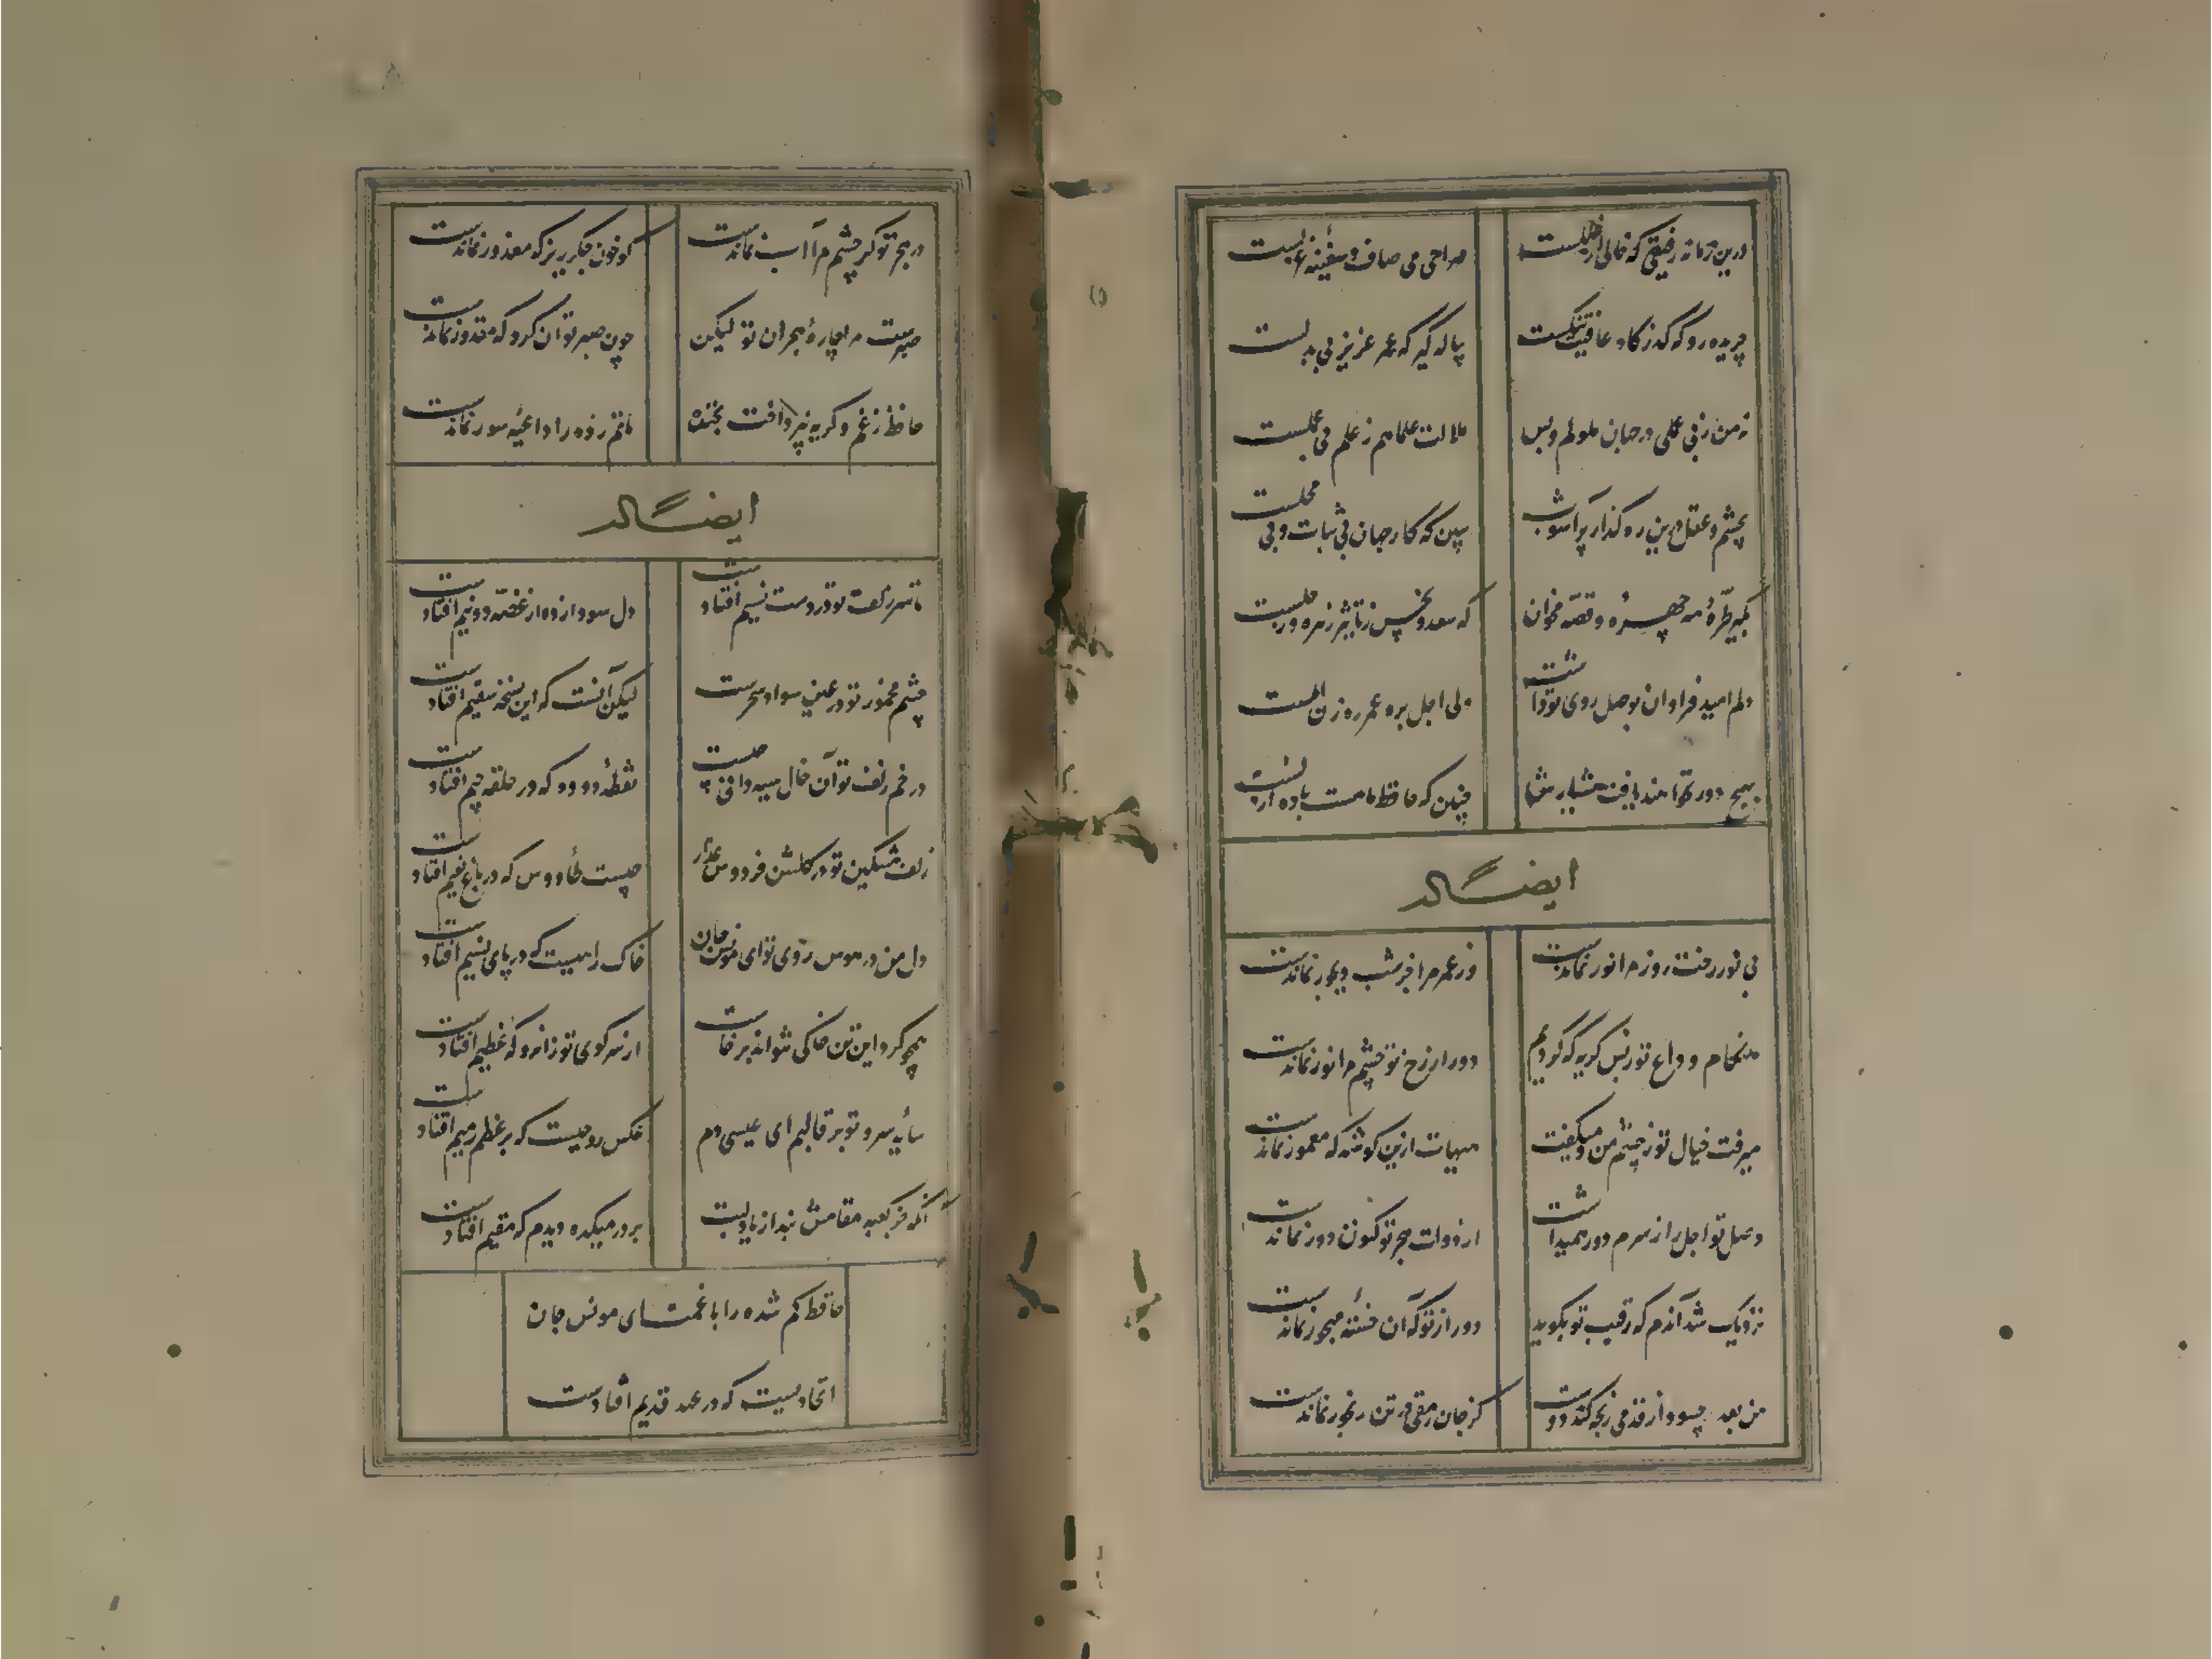 درین زمانه رفیقی که خالی از خللست
صراحی می صاف و سفینه غزلست
جریده رو که گذرگاه عافیت تنگست
پیاله گیر که عمر عزیز بی بدلست
نه من ز بی عملی در جهان ملولم و بس
ملالت علما هم ز علم بی عملست
بچشم عقل درین رهگذار پرآشوب
ببین که کار جهان بی ثبات و بی محلست
بگیر طره مه چهره و قصه مخوان
که سعد و نحس ز تاثیر زهره و زحلست
دلم امید فراوان بوصل روی تو داشت
ولی اجل بره عمر رهزن املست
بهیچ دور نخواهند یافت هشیارش
چنین که حافظ ما مست باده ازلست
ایضاً له
بی نور رخت روز مرا نور نماندست
وز عمر مرا جز شب دیجور نماندست
هنگام وداع تو ز بس گریه که کردم
دور از رخ تو چشم مرا نور نماندست
میرفت خیال تو ز چشم من و میگفت
هیهات ازین گوشه که معمور نماندست
وصل تو اجل را ز سرم دور همیداشت
از دولت هجر تو کنون دور نماندست
نزدیک شد آندم که رقیب تو بگوید
دور از تو که آن خسته مهجور نماندست
من بعد چه سود ار قدمی رنجه کند دوست
کز جان رمقی در تن رنجور نماندست
در هجر تو گر چشم مرا آب نماندست
گو خون جگر ریز که معذور نماندست
صبرست مرا چاره هجران تو لیکن
چون صبر توان کرد که مقدور نماندست
حافظ ز غم و گریه نپرداخت بخنده
ماتم زده را داعیه سور نماندست
ایضاً له
تا سر زلف تو در دست نسیم افتادست
دل سودازده از غصه دو نیم افتادست
چشم مخمور تو در عین سواد سحرست
لیکن آنست که این نسخه سقیم افتادست
در خم زلف تو آن خال سیه دانی چیست
نقطه دوده که در حلقه جیم افتادست
زلف مشکین تو در گلشن فردوس عذار
چیست طاووس که در باغ نعیم افتادست
دل من در هوس روی تو ای مونس جان
خاک راهیست که در پای نسیم افتادست
همچو گرد این تن خاکی نتواند برخاست
از سر کوی تو زانرو که عظیم افتادست
سایه سرو تو بر قالبم ای عیسی دم
عکس روحیست که بر عظم رمیم افتادست
آنکه جز کعبه مقامش نبد از یاد لبت
بر در میکده دیدم که مقیم افتادست
حافظ گم شده را با غمت ای مونس جان
اتحادیست که در عهد قدیم افتادست